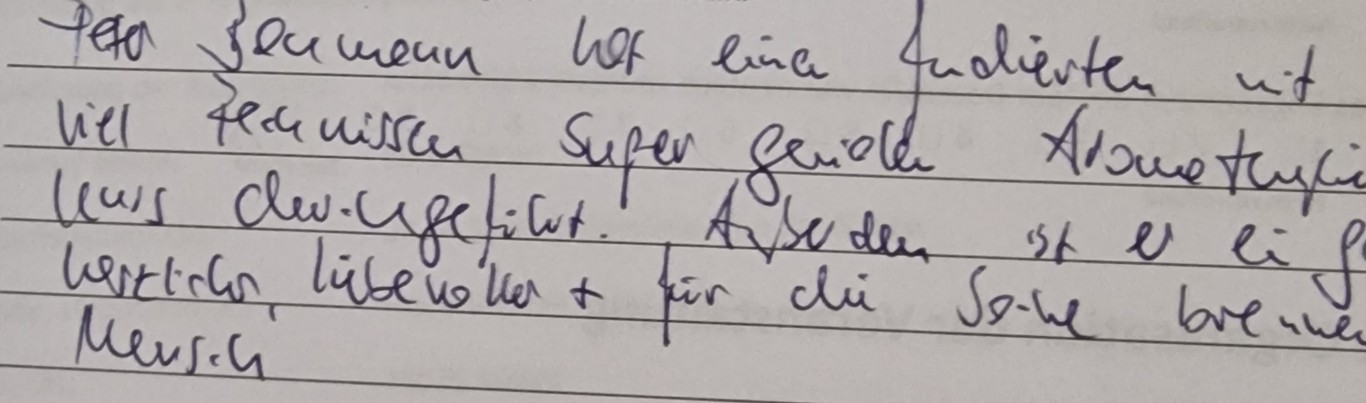 Peter Jeumann hat eine fundierten mit
viel technissen super genialen Aromatk
kurs durchgeführt. Außerdem ist er ei g
herzlicher, liebevoller + für die Sache brenne
Mensch